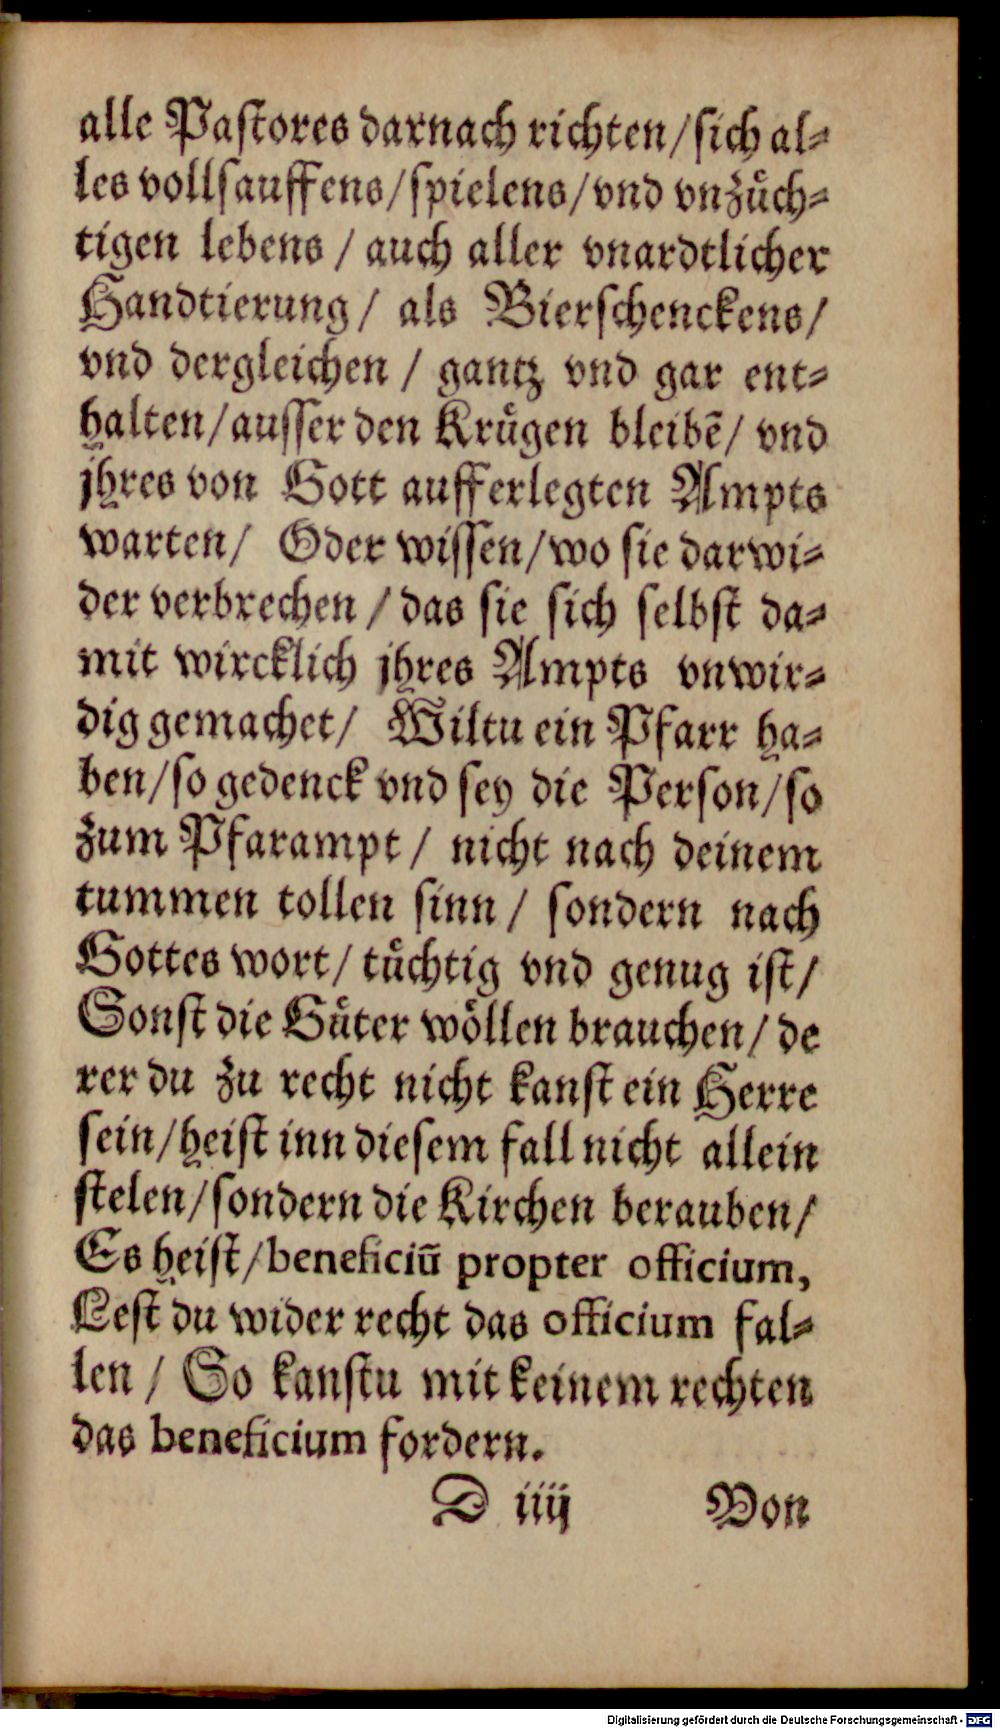 alle Pastores darnach richten/sich al⸗
les vollsauffens/spielens/vnd vnzuͤch⸗
tigen lebens / auch aller vnardtlicher
Handtierung/ als Bierschenckens/
vnd dergleichen / gantz vnd gar ent⸗
halten/ausser den Kruͤgen bleibẽ/ vnd
jhres von Gott aufferlegten Ampts
warten/ Oder wissen/wo sie darwi⸗
der verbrechen / das sie sich selbst da⸗
mit wircklich jhres Ampts vnwir⸗
dig gemachet/ Wiltu ein Pfarr ha⸗
ben/so gedenck vnd sey die Person/so
zum Pfarampt / nicht nach deinem
tummen tollen sinn / sondern nach
Gottes wort/ tuͤchtig vnd genug ist/
Sonst die Guͤter woͤllen brauchen/ de
rer du zu recht nicht kanst ein Herre
sein/heist inn diesem fall nicht allein
stelen/sondern die Kirchen berauben/
Es heist/beneficiū propter officium,
Lest du wider recht das officium fal⸗
len / So kanstu mit keinem rechten
das beneficium fordern.
D iiij Von
Digitalisierung gefördert durch die Deutsche Forschungsgemeinschaft - DFG